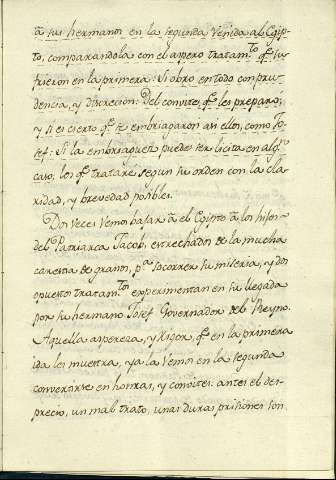 à sus hermanos en la segunda venida al Egip-
to, comparandola con el aspero tratam.to q.e su-
frieron en la primera: Si obrò en todo con pru-
dencia, y discrecion: Del convite, q.e les preparó;
y si es cierto q.e se embriagaron assi ellos, como Jo-
sef: Si la embriaguez puede ser licita en alg.n
caso, los q.e trataré segun su orden con la cla-
ridad, y brevedad posible.
Dos veces vemos bajar à el Egipto à los hijos
del Patriarca Jacob, estrechados de la mucha
carestia de granos, p.a socorrer su miseria, y dos
opuestos tratam.tos experimentan en su llegada
por su hermano Josef Governador del Reyno.
Aquella aspereza, y rigor, q.e en la primera
ida les muestra, ya la vemos en la segunda
convertirse en honras, y convites: antes el des-
precio, un mal trato, unas duras prisiones son